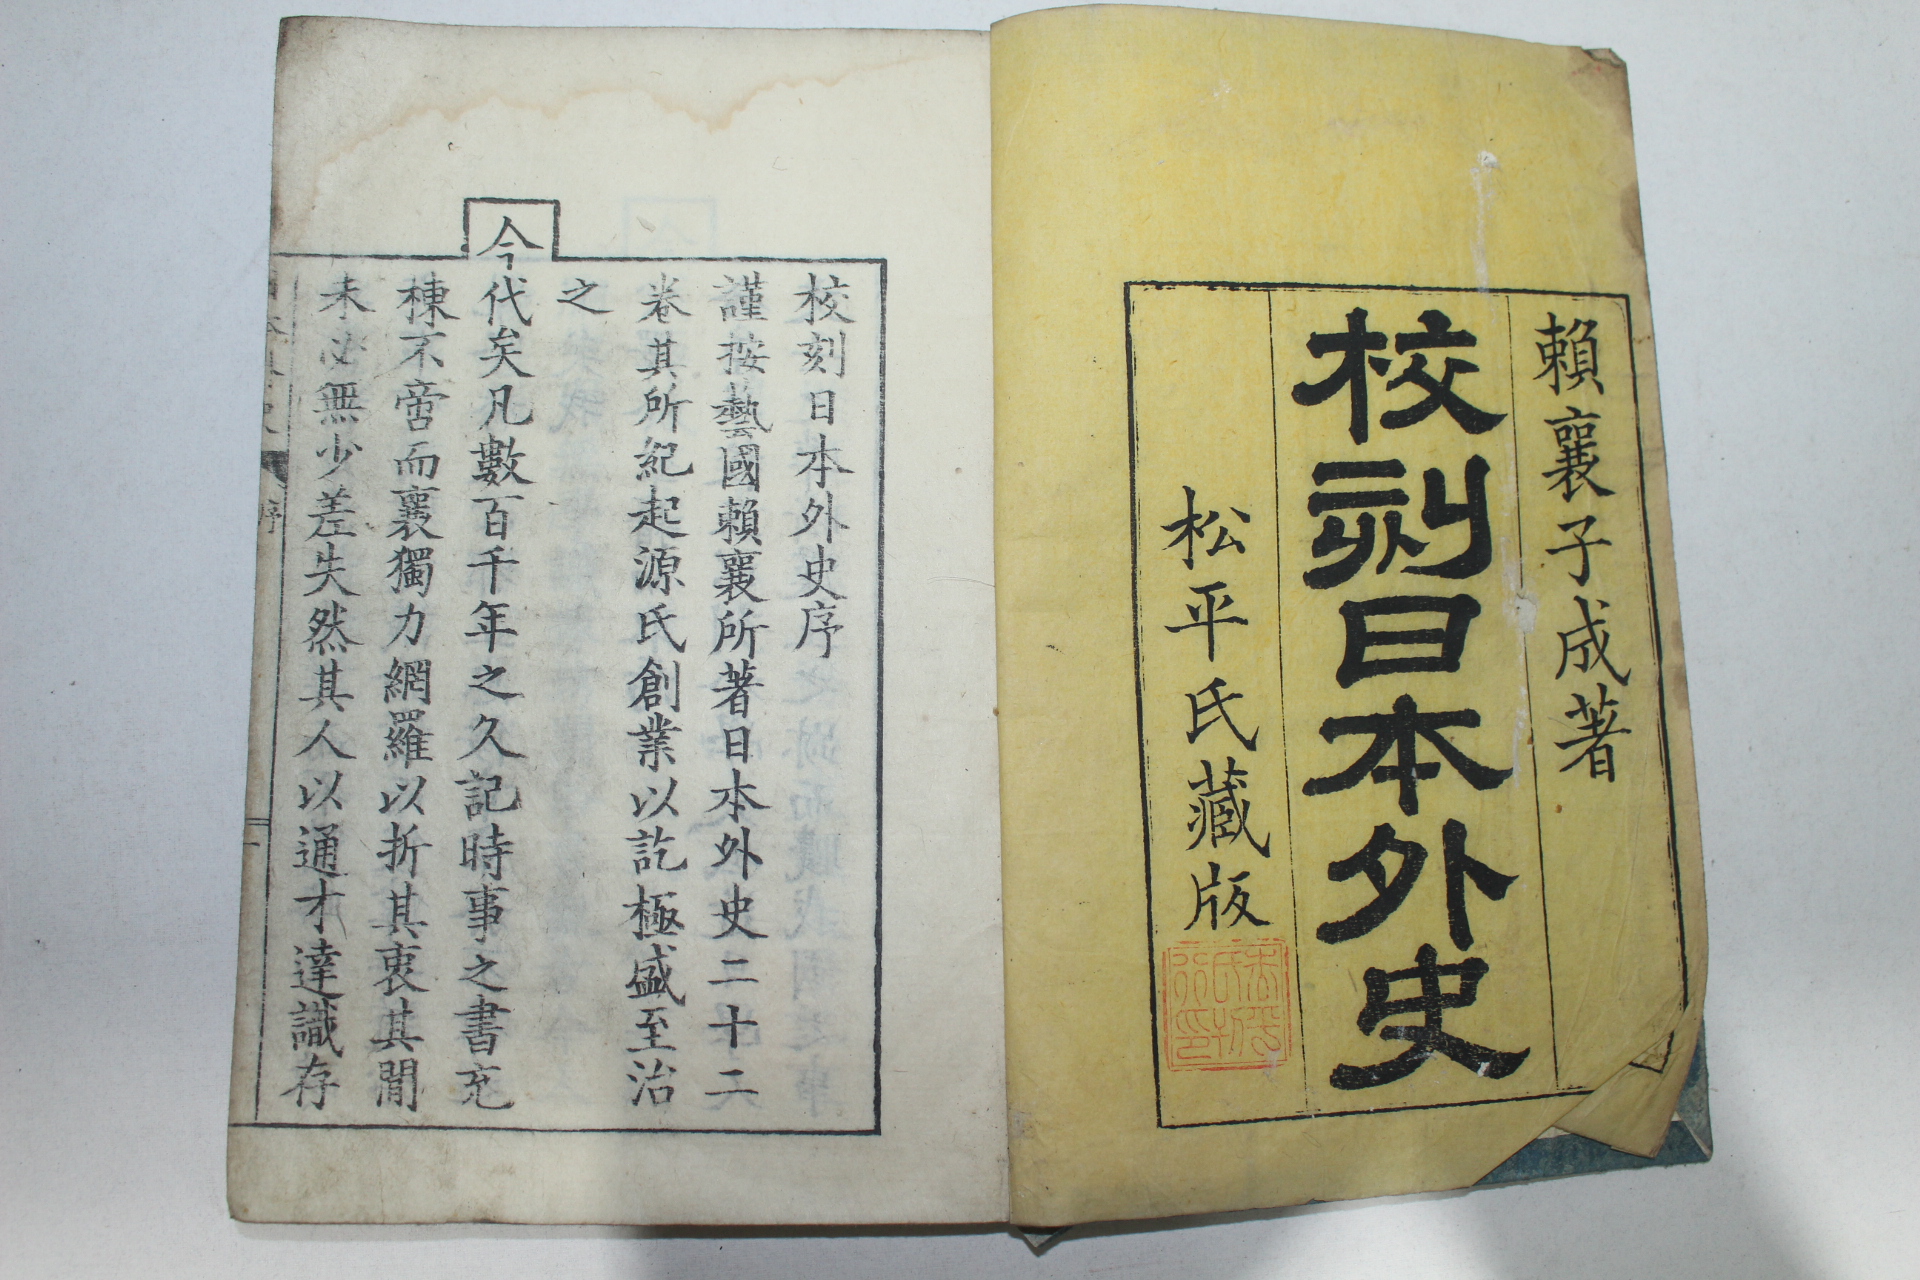 賴襄子成著
校刻日本外史
松平氏藏版
校刻日本外史序
謹按藝國賴襄所著日本外史二十二
卷其所紀起源氏創業以訖極盛至治
之
今代矣凡數百千年之久記時事之書充
棟不啻而襄獨力網羅以折其衷其閒
未必無少差失然其人以通才達識存
序